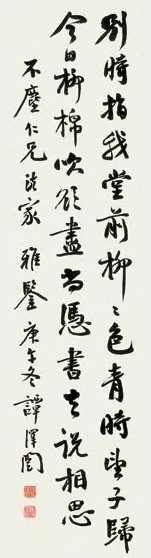 别时指我堂前柳柳色青時望子歸
今日柳棉吹欲盡尚憑書去説相思
不塵仁兄法家 雅鑒 庚午冬 譚澤闓